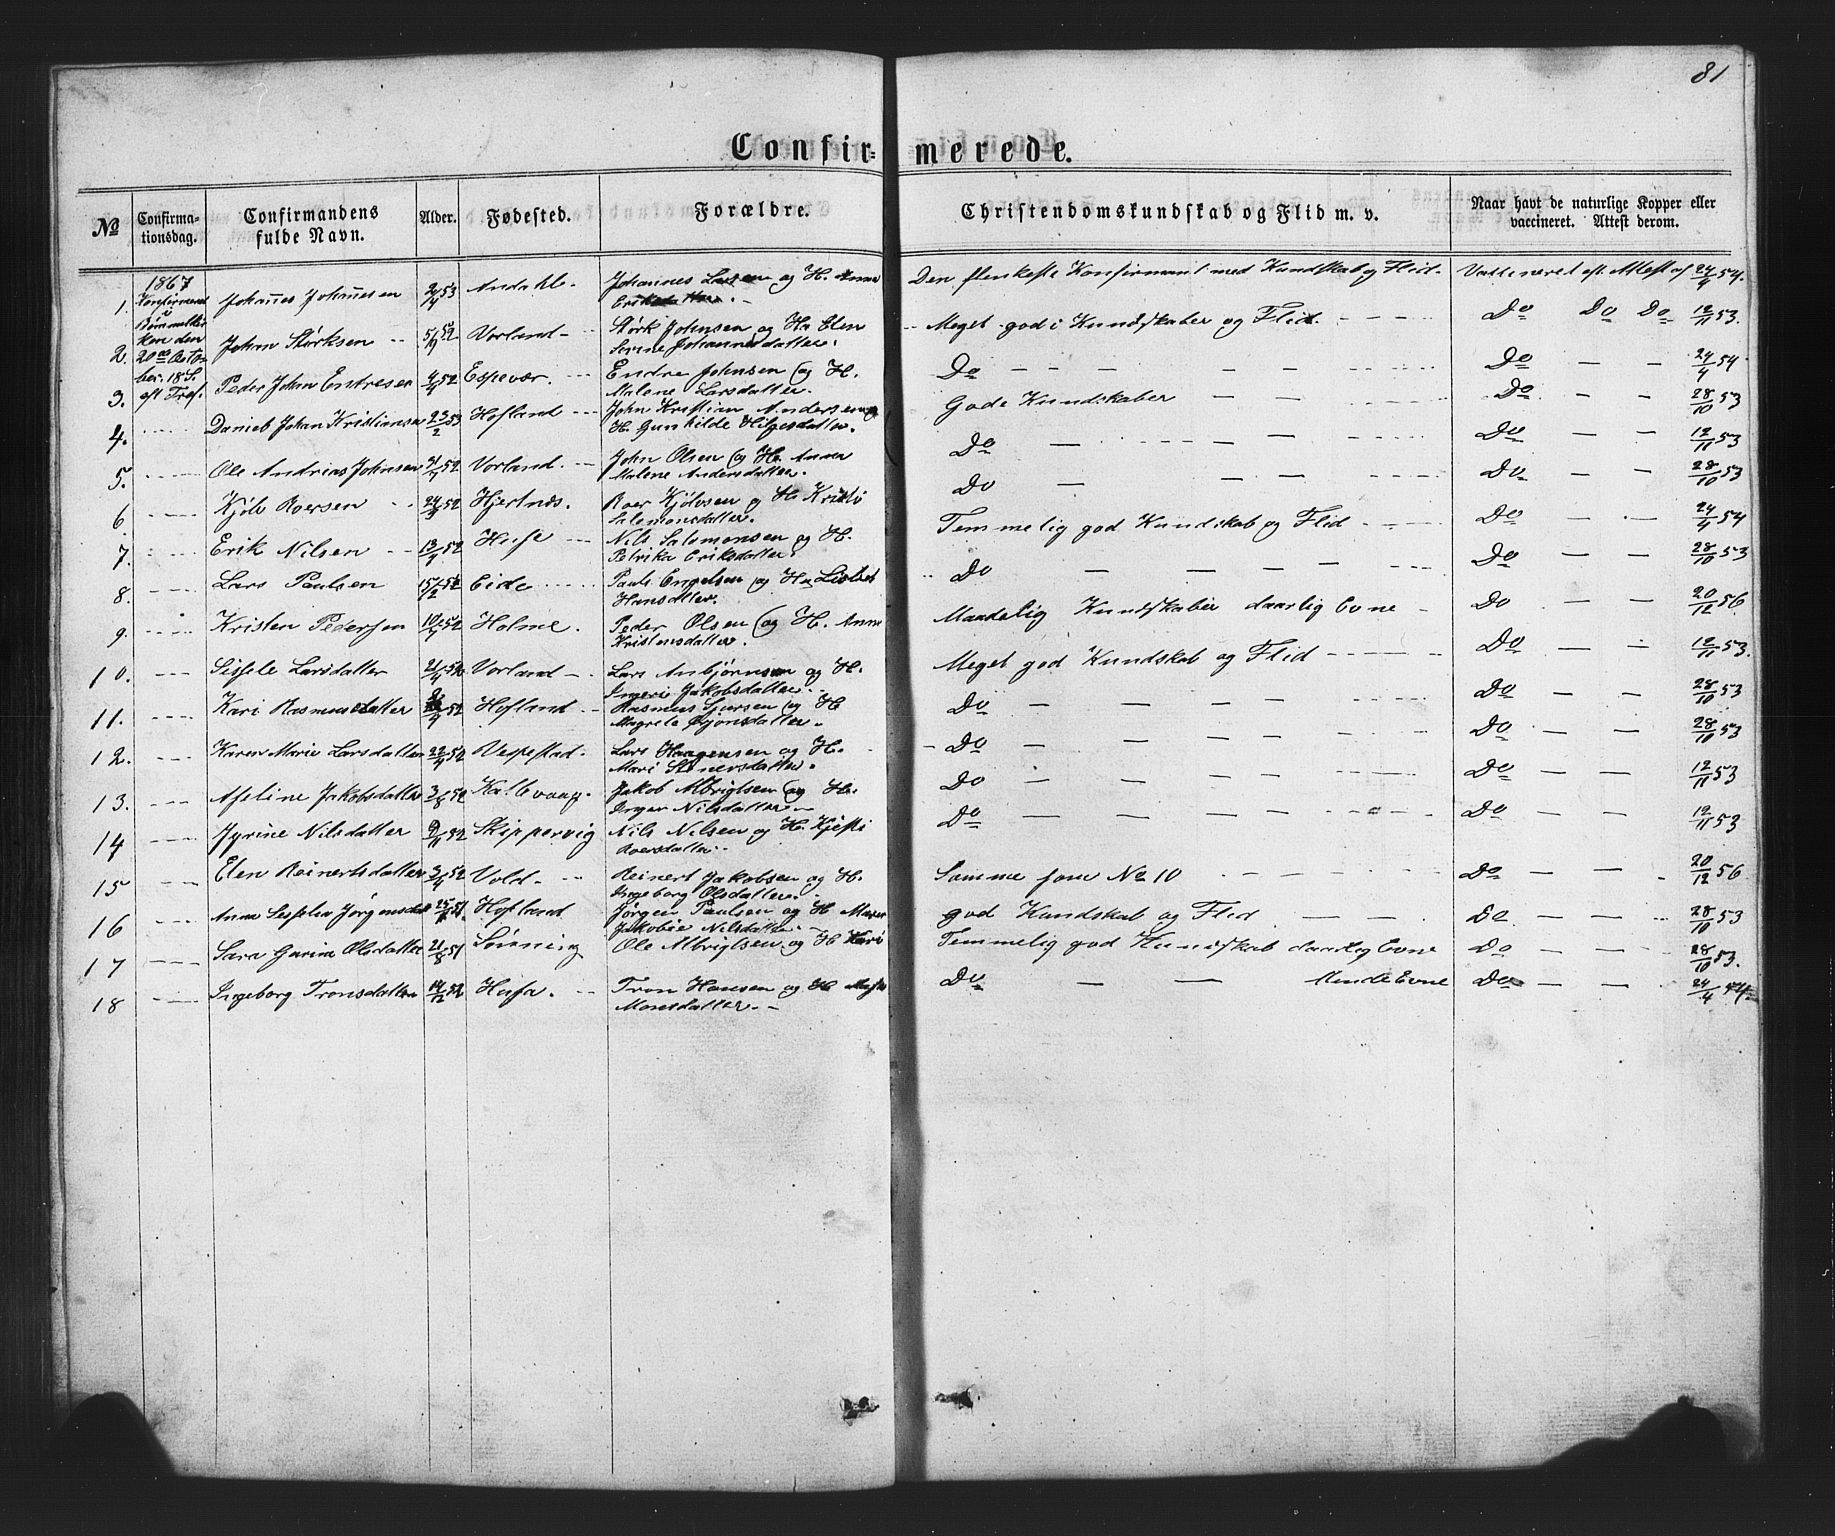 81
Confir- merede.
No
Confirma-
tionsdag.
Confirmandens
fulde Navn.
Alder.
Fødested.
Forældre.
Christendomskundskab og Flid m. v.
Naar havt de naturlige Kopper eller
vaccineret. Attest derom.
1867
Konfirmeret
i
Bømmelkir
ken den
20de Octo-
ber. 18 S.
eft Tref.
1. Johannes Johannesen 2/4 53 Andahl - Johannes Larsen og H. Anna
Eriksdatter. -
Den flenkeste Konfirmant med Kundskab og Flid. Vaccineret eft. Attest af 24/4 54.
2. Johan Størksen Vorland - Størk Johnsen og H. Elen
Serine Johannesdatter.
Meget god i Kundskaber og Flid. - - - - Do Do Do 12/11 53.
3. Peder Johan Endresen 4/5 52 Espevær. Endre Johnsen og H.
Malene Larsdatter.
Do - - - - Do - - 24/4 54
4. Daniel Johan Kristiansen 23/2 53 Hofland - - - John Kristian Andersen og
H. Gunhilde Helgesdatter.
Gode Kundskaber - - Do - - 28/10 53
5. Ole Andreas Johnsen Vorland. - John Olsen og H. Anna
Malene Andersdatter.
Do - - - - Do - - 12/11 53
6. Kjölv Roersen 24/3 52 Hjertnæs. Roer Kjölvsen og H. Kristi
Salamonsdatter.
Do - - Do - - 28/10 53
7. Erik Nilsen - - 13/4 52 Huse - - - Nils Salomonsen og H.
Petrika Eriksdatter.
Temmelig god Kundskab og Flid - - - - Do - - 24/4 54
8. Lars Paulsen 15/2 52 Eide - - - Paul Engelsen og H.
Hansdatter.
Do - - - - Do - - 28/10 53
9. Kristen Pedersen 10/4 52 Holme. Peder Olsen og H. Anna
Kristensdatter.
Maadelig Kundskaber daarlig Evne - Do - - 20/12 56
10. Sissele Larsdatter 21/4 52 Vorland - . Lars Anbjørnsen og H.
Ingeri Jakobsdatter. -
Meget god Kundskab og Flid - - - - Do - - 12/11 53.
11. Kari Rasmusdatter Hofland - Rasmus Sjursen og H
Magrete Øjonsdatter.
Do - - - - Do - - 28/10 53
12. Karen Marie Larsdatter 22/4 52 Vespestad. Lars Haagensen og H.
Mari Stenersdatter.
Do - - - - Do - - 28/10 53
13. Aseline Jakobsdatter 3/8 52 Kalbevaag. Jakob Albrigtsen og H.
Inger Nilsdatter -
Do - - - - Do - - 12/11 53
14 Jyrine Nilsdatter 9/11 52 Skippervig Nils Nilsen og H. Kjesti
Roersdatter -
Do - - - - Do - - 12/11 53
15 Elen Reinertsdatter 3/4 52 Vold - - - Reinert Jakobsen og H.
Ingeborg Olsdatter.
Samme som No 10 - - - - Do - - 20/12 56
16 Anna Hofland Jørgen Paulsen og H Maren
Jakobie Nilsdatter.
god Kundskab og Flid - - Do - - 28/10 53
17 Sara Gurina Olsdatter 21/8 51 Ole Albrigtsen og H Kari
Temmelig god Kundskab daarlig Evne Do - - 28/10 53.
18 Ingeborg Tronsdatter Hufa. - - Tron Hansen og H
Monsdatter. -
Do - - Mende Evne Do - - 24/4 54